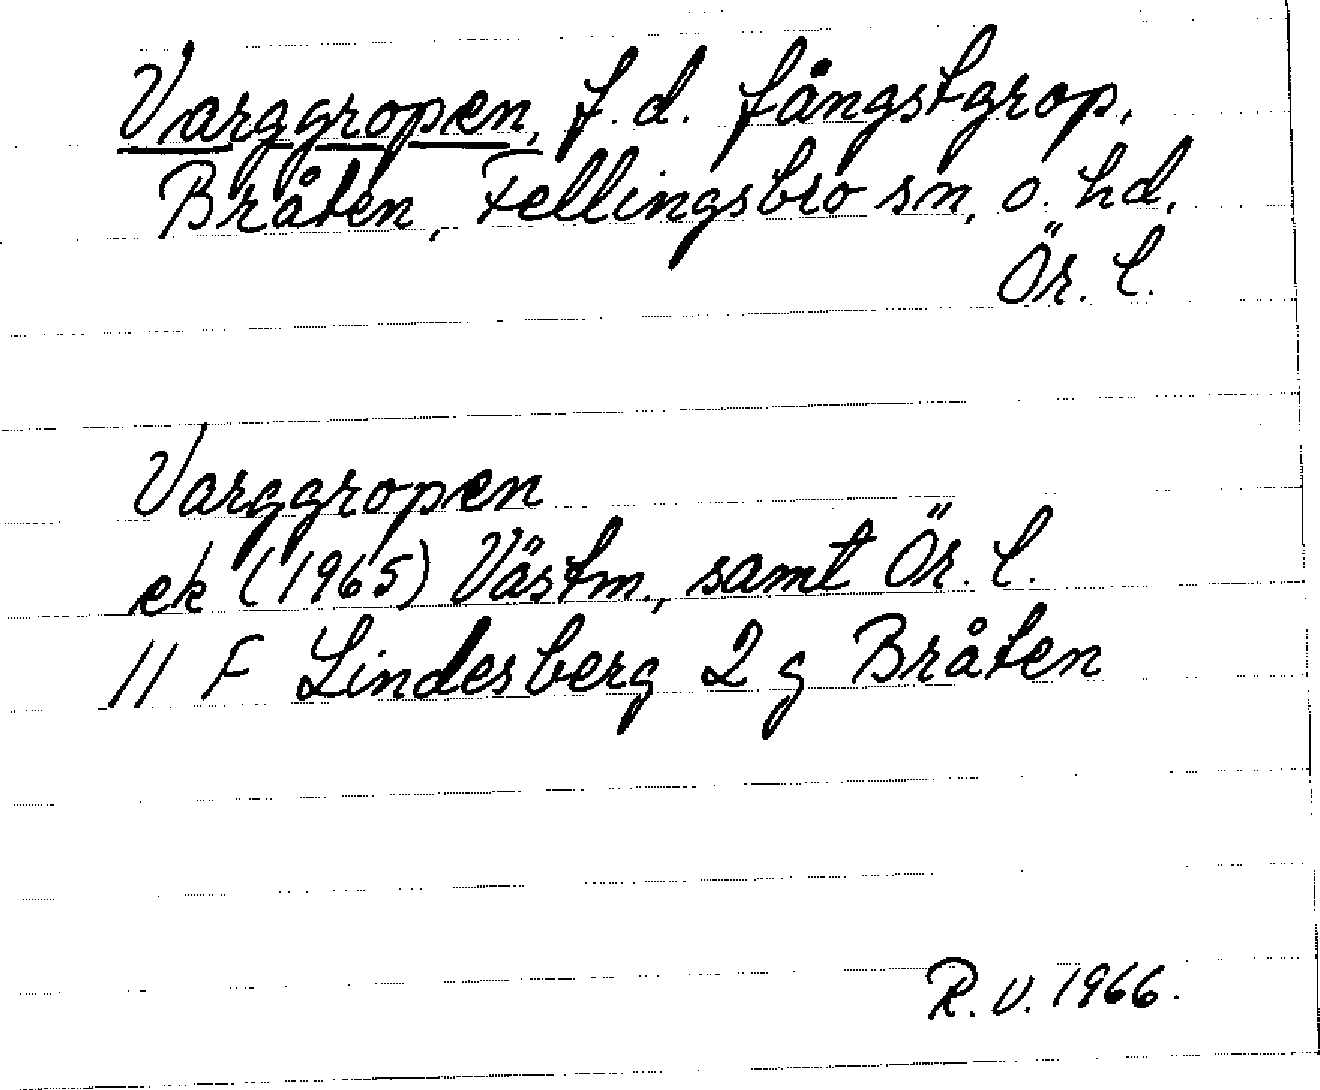 Varggropen, f.d. fångstgrop.
Bråten, Fellingsbro sn, o. hd,
Ör. l.
Varggropen
ek (1965) Västm., samt Ör. l.
11 F Lindesberg 2 g Bråten
R.V. 1966.